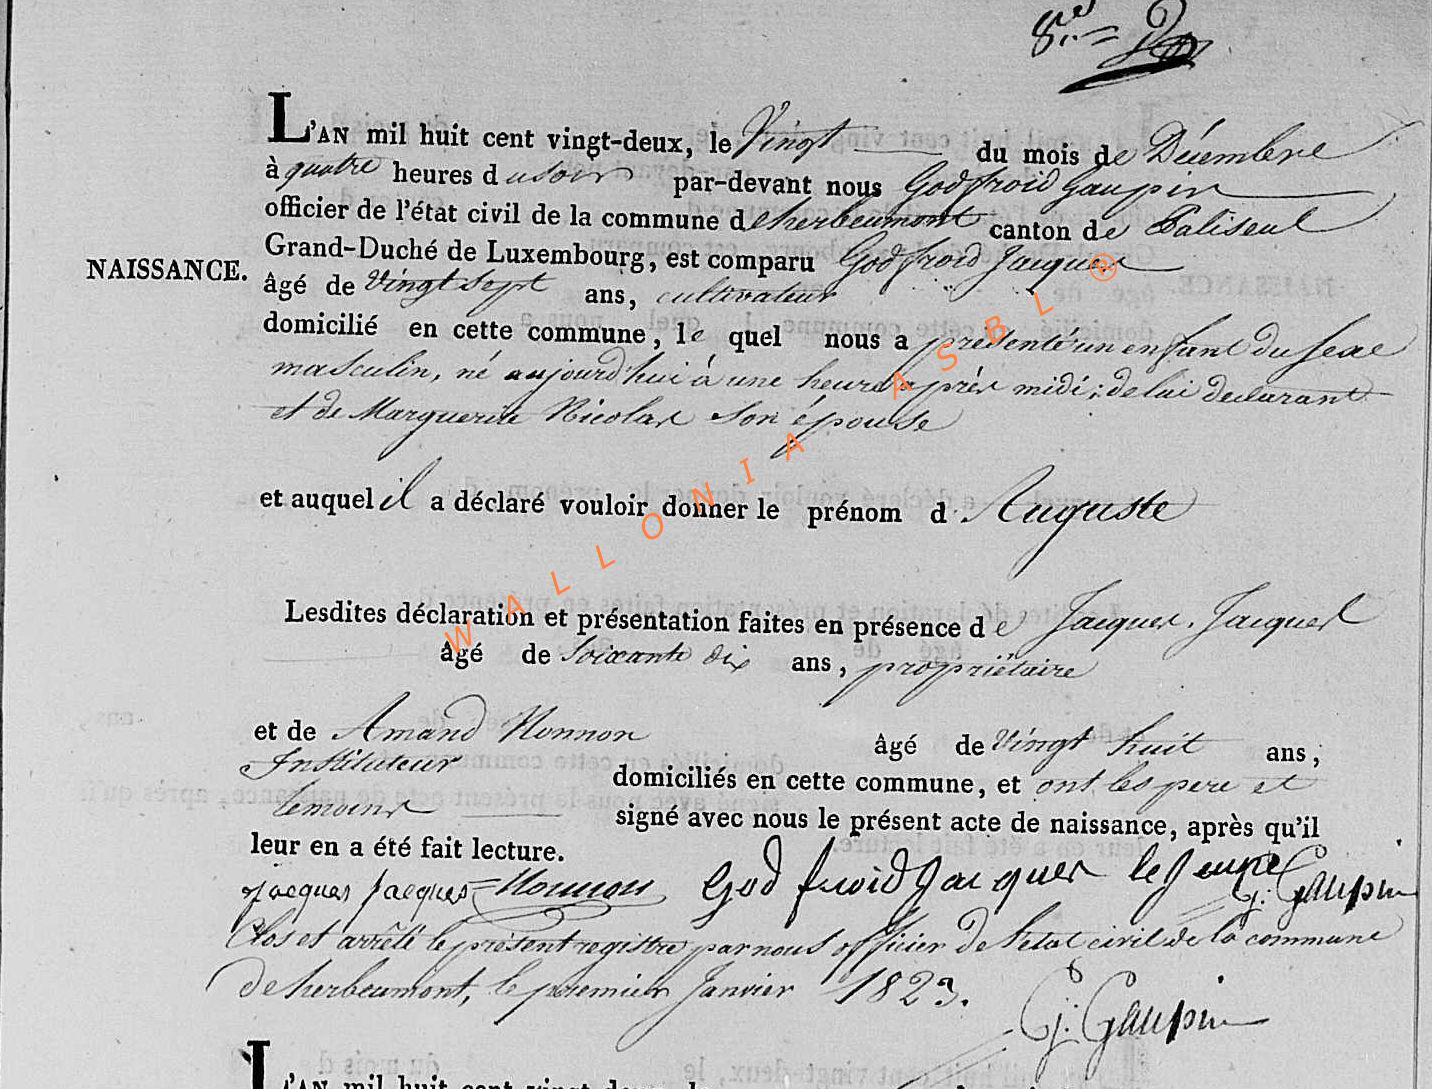 8re =
L'AN mil huit cent vingt-deux, le Vingt du mois de Décembre
à quatre heures du soir par-devant nous Godfroid Gaupin
officier de l'état civil de la commune de herbeumont canton de Paliseul
Grand-Duché de Luxembourg, est comparu Godfroid Jacques
NAISSANCE.
âgé de Vingt Sept ans, cultivateur
domicilié en cette commune, le quel nous a présenté un enfant du sexe
masculin, né aujourd'hui à une heure après midi; de lui declarant
et de Marguerite Nicolas Son épouse
et auquel il a déclaré vouloir donner le prénom d'Auguste
Lesdites déclaration et présentation faites en présence de Jacques Jacques
âgé de Soixante dix ans, propriétaire
et de Amand Nonnon âgé de Vingt huit ans,
Instituteur domiciliés en cette commune, et ont les pere et
temoins signé avec nous le présent acte de naissance, après qu'il
leur en a été fait lecture.
Jacques Jacques = Nonnon Godfroid Jacques le Jeune G: Gaupin
Clos et arrêté le présent registre par nous officier de l'etat civil de la commune
de herbeumont, le premier Janvier 1823.
G: Gaupin
L'AN mil huit cent vingt-deux, le
WALLONIA ASBL ®